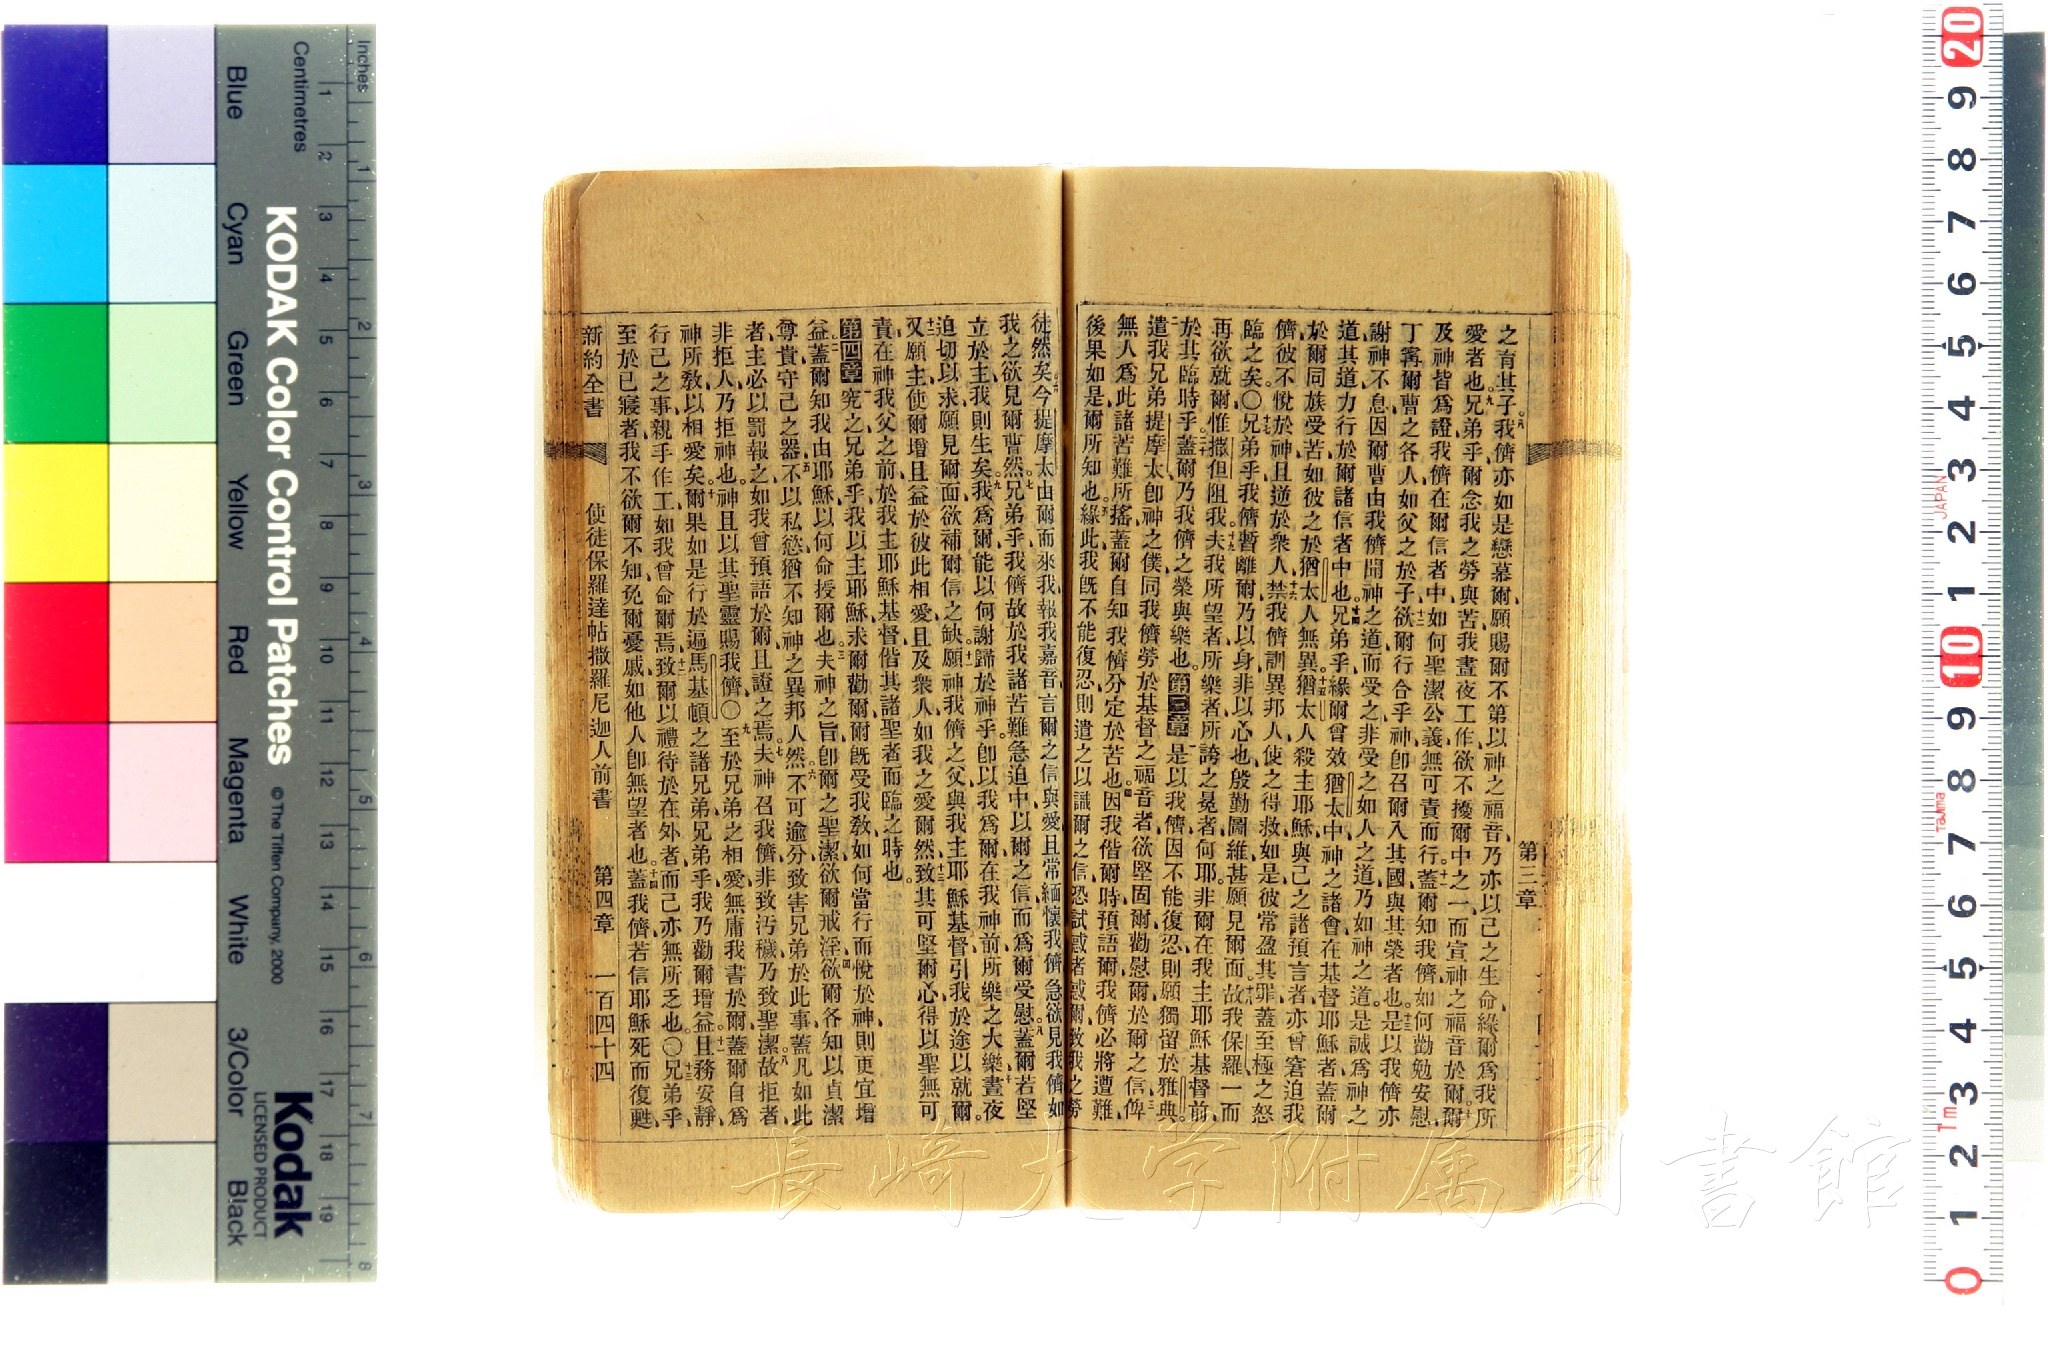 之育其子我儕亦如是戀慕爾願賜爾不第以神之福音乃亦以己之生命緣爾爲我所
愛者也兄弟乎爾念我之勞與苦我晝夜工作欲不擾爾中之一而宣神之福音於爾爾
及神皆爲證我儕在爾信者中如何聖潔公義無可責而行蓋爾知我儕如何勸勉安慰
丁寧爾曹之各人如父之於子欲爾行合乎神卽召爾入其國與其榮者也是以我儕亦
謝神不息因爾曹由我儕聞神之道而受之非受之如人之道乃如神之道是誠爲神之
道其道力行於爾諸信者中也兄弟乎緣爾曾效猶太中神之諸會在基督耶穌者蓋爾
於爾同族受苦如彼之於猶太人無異猶太人殺主耶穌與己之諸預言者亦曾窘迫我
儕彼不悅於神且逆於衆人禁我儕訓異邦人使之得救如是彼常盈其罪蓋至極之怒
臨之矣〇兄弟乎我儕暫離爾乃以身非以心也殷勤圖維甚願見爾面故我保羅一而
再欲就爾惟撒但阻我夫我所望者所樂者所誇之冕者何耶非爾在我主耶穌基督前
於其臨時乎蓋爾乃我儕之榮與樂也第三章是以我儕因不能復忍則願獨留於雅典
遣我兄弟提摩太卽神之僕同我儕勞於基督之福音者欲堅固爾勸慰爾於爾之信俾
無人爲此諸苦難所搖蓋爾自知我儕分定於苦也因我偕爾時預語爾我儕必將遭難
後果如是爾所知也緣此我旣不能復忍則遣之以識爾之信恐試惑者惑爾致我之勞
第三章
徒然矣今提摩太由爾而來我報我嘉音言爾之信與愛且常緬懷我儕急欲見我儕如
我之欲見爾曹然兄弟乎我儕故於我諸苦難急迫中以爾之信而爲爾受慰蓋爾若堅
立於主我則生矣我爲爾能以何謝歸於神乎卽以我爲爾在我神前所樂之大樂晝夜
迫切以求願見爾面欲補爾信之缺願神我儕之父與我主耶穌基督引我於途以就爾
又願主使爾增且益於彼此相愛且及衆人如我之愛爾然致其可堅爾心得以聖無可
責在神我父之前於我主耶穌基督偕其諸聖者而臨之時也
第四章究之兄弟乎我以主耶穌求爾勸爾爾旣受我敎如何當行而悅於神則更宜增
益蓋爾知我由耶穌以何命授爾也夫神之旨卽爾之聖潔欲爾戒淫欲爾各知以貞潔
尊貴守己之器不以私慾猶不知神之異邦人然不可逾分致害兄弟於此事蓋凡如此
者主必以罰報之如我曾預語於爾且證之焉夫神召我儕非致汚穢乃致聖潔故拒者
非拒人乃拒神也神且以其聖靈賜我儕〇至於兄弟之相愛無庸我書於爾蓋爾自爲
神所敎以相愛矣爾果如是行於遍馬基頓之諸兄弟兄弟乎我乃勸爾增益且務安靜
行己之事親手作工如我曾命爾焉致爾以禮待於在外者而己亦無所乏也〇兄弟乎
至於已寢者我不欲爾不知免爾憂戚如他人卽無望者也蓋我儕若信耶穌死而復甦
新約全書 使徒保羅達帖撒羅尼迦人前書 第四章 一百四十四
長崎大学附属図書館
Inches
Centimetres
KODAK Color Control Patches
© The Tiffen Company, 2000
Kodak
LICENSED PRODUCT
Blue Cyan Green Yellow Red Magenta White 3/Color Black
JAPAN
Tajima
Tm